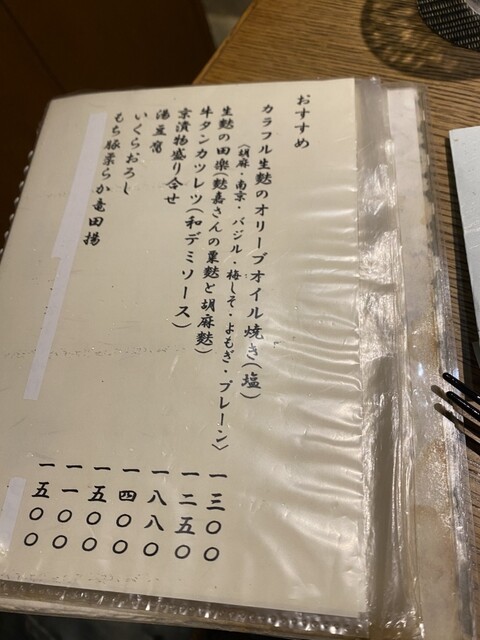 おすすめ
カラフル生麩のオリーブオイル焼き(塩) 一三〇〇
〈胡麻・南京・バジル・梅しそ・よもぎ・プレーン〉
生麩の田楽(麩嘉さんの粟麩と胡麻麩) 一二五〇
牛タンカツレツ(和デミソース) 一八八〇
京漬物盛り合せ 一四〇〇
湯豆腐 一五〇〇
いくらおろし 一一〇〇
もち豚柔らか竜田揚 一五〇〇